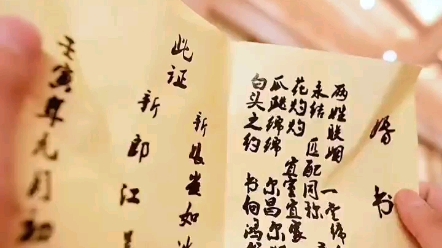 婚书
两姓联姻 一堂缔
永结 匹配同称
花灼灼 宜室宜家
瓜瓞绵绵 尔昌尔
白头之约 书向鸿
此证
新娘黄如
新郎江
壬寅年元月初